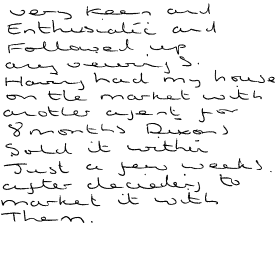 very keen and
Enthusiatic and
Followed up
any viewings.
Having had my house
on the market with
another agent for
8 months Dixons
Sold it within
Just a few weeks.
after decideing to
market it with
Them.